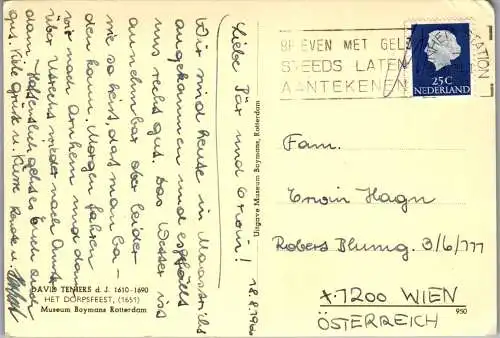 18.8.1966
Liebe Pür und Erwin!
Wir sind heute in Maastricht
angekommen und es gefällt
uns recht gut. Das Wetter ist
annehmbar aber leider
nie so heiss, dass man ba-
den kann. Morgen fahren
wir nach Arnheim und dann
über Utrecht wieder nach Amster-
dam. Hoffentlich geht es Euch auch
gut. Viele Grüsse u. Küsse Renate u.
DAVID TENIERS d. J. 1610-1690
HET DORPSFEEST, (1651)
Museum Boymans Rotterdam
Uitgave Museum Boymans, Rotterdam
BRIEVEN MET GELD
STEEDS LATEN
AANTEKENEN
25C
NEDERLAND
Fam.
Erwin Hagn
Robert Blumg. 3/6/
X-1200 WIEN
ÖSTERREICH
950